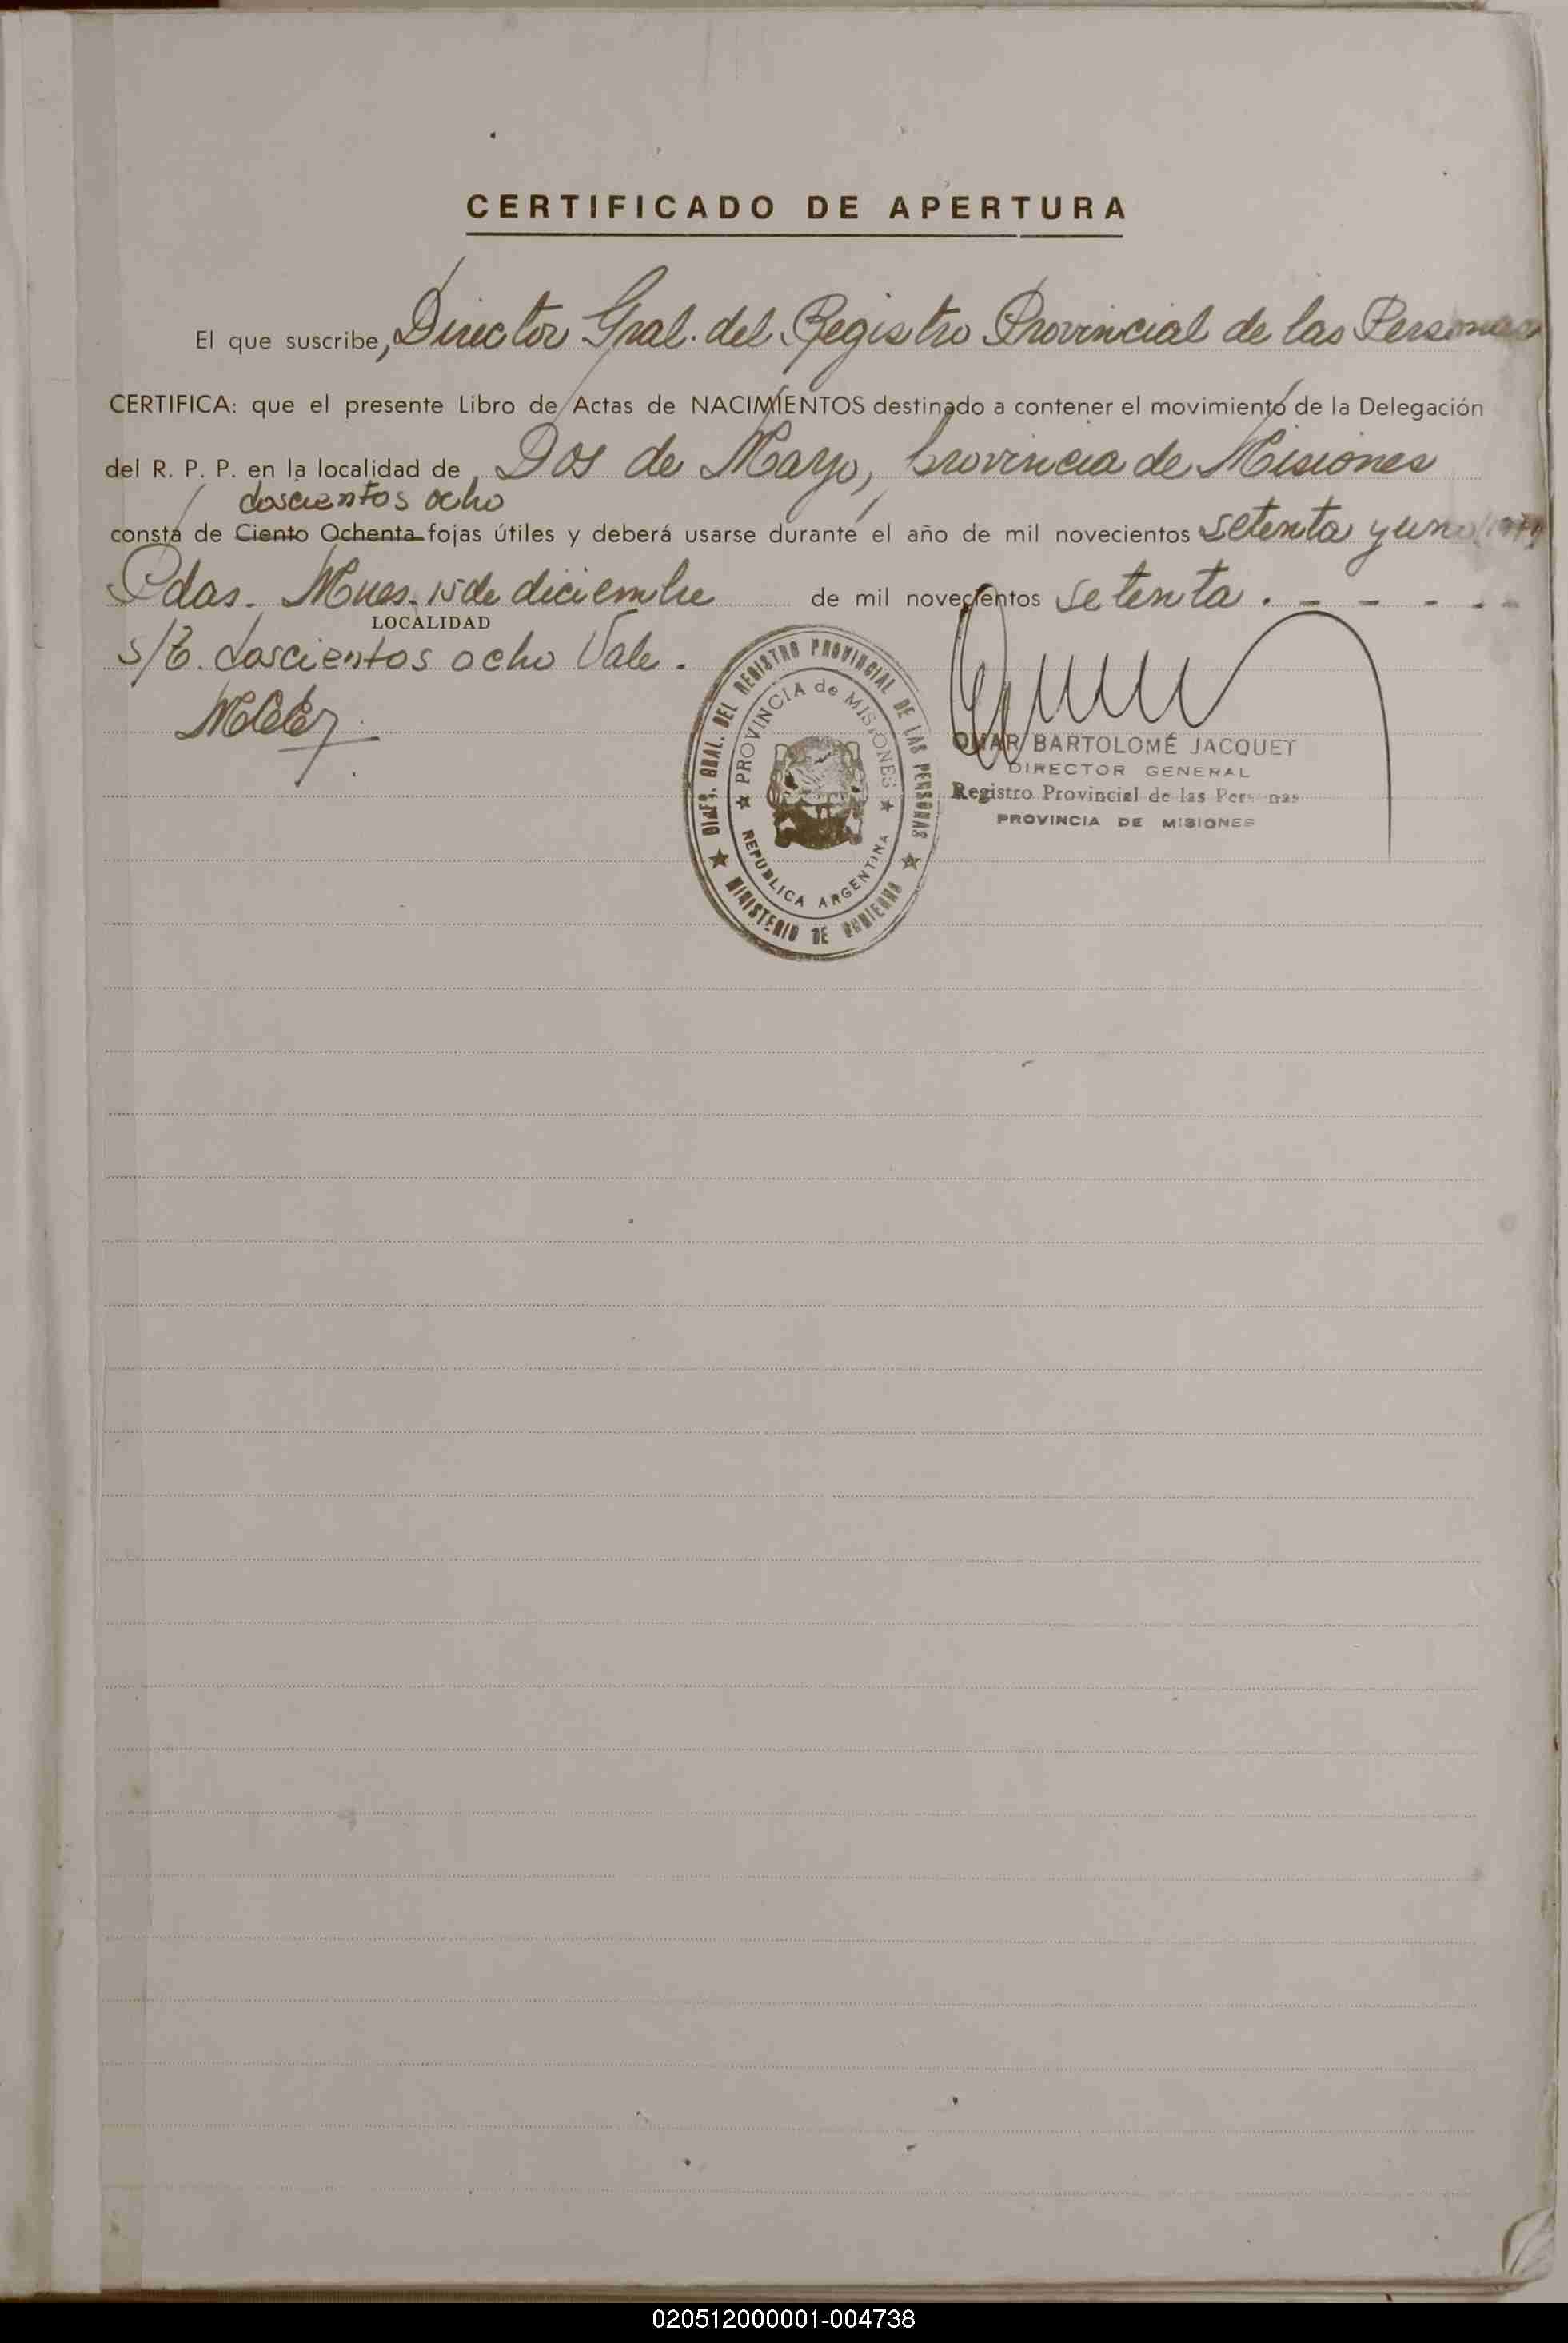 CERTIFICADO DE APERTURA
El que suscribe, Director Gral. del Registro Provincial de las Personas
CERTIFICA: que el presente Libro de Actas de NACIMIENTOS destinado a contener el movimiento de la Delegación
del R. P. P. en la localidad de Dos de Mayo, provincia de Misiones
doscientos ocho
consta de Ciento Ochenta fojas útiles y deberá usarse durante el año de mil novecientos setenta y uno (1971)
Pdas. Mnes. 15 de diciembre de mil novecientos setenta. - - - - -
LOCALIDAD
s/b. doscientos ocho Vale.
DIREC. GRAL. DEL REGISTRO PROVINCIAL DE LAS PERSONAS
PROVINCIA de MISIONES
REPUBLICA ARGENTINA
MINISTERIO DE GOBIERNO
OMAR BARTOLOMÉ JACQUET
DIRECTOR GENERAL
Registro Provincial de las Personas
PROVINCIA DE MISIONES
020512000001-004738